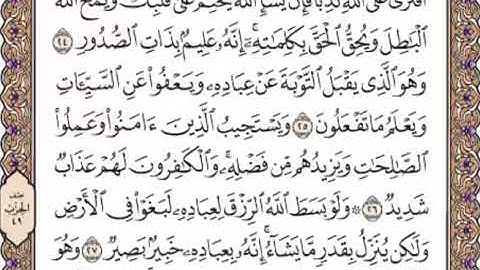 ٱفۡتَرَىٰ عَلَى ٱللَّهِ كَذِبٗاۖ فَإِن يَشَإِ ٱللَّهُ يَخۡتِمۡ عَلَىٰ قَلۡبِكَۗ وَيَمۡحُ ٱللَّهُ
ٱلۡبَٰطِلَ وَيُحِقُّ ٱلۡحَقَّ بِكَلِمَٰتِهِۦٓۚ إِنَّهُۥ عَلِيمُۢ بِذَاتِ ٱلصُّدُورِ ٢٤
وَهُوَ ٱلَّذِي يَقۡبَلُ ٱلتَّوۡبَةَ عَنۡ عِبَادِهِۦ وَيَعۡفُواْ عَنِ ٱلسَّيِّـَٔاتِ
وَيَعۡلَمُ مَا تَفۡعَلُونَ ٢٥ وَيَسۡتَجِيبُ ٱلَّذِينَ ءَامَنُواْ وَعَمِلُواْ
ٱلصَّٰلِحَٰتِ وَيَزِيدُهُم مِّن فَضۡلِهِۦۚ وَٱلۡكَٰفِرُونَ لَهُمۡ عَذَابٞ
شَدِيدٞ ٢٦ ۞ وَلَوۡ بَسَطَ ٱللَّهُ ٱلرِّزۡقَ لِعِبَادِهِۦ لَبَغَوۡاْ فِي ٱلۡأَرۡضِ
وَلَٰكِن يُنَزِّلُ بِقَدَرٖ مَّا يَشَآءُۚ إِنَّهُۥ بِعِبَادِهِۦ خَبِيرُۢ بَصِيرٞ ٢٧ وَهُوَ
حزب
الحزب
٤٩